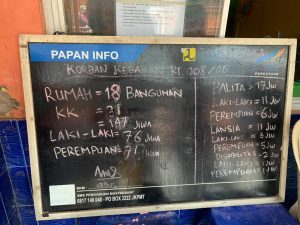 PAPAN INFO
KORBAN KEBAKARAN RT 008/06
RUMAH = 18 BANGUNAN
KK =
= 147 JIWA
LAKI-LAKI = 76 JIWA
PEREMPUAN = 71 JIWA
BALITA = 17 JIWA
LAKI-LAKI = 11 JIWA
PEREMPUAN = 6 JIWA
LANSIA = 11 JIWA
LAKI-LAKI = 6 JIWA
PEREMPUAN = 5 JIWA
DISABILITAS = 2 JIWA
LAKI-LAKI = 1 JIWA
PEREMPUAN = 1 JIWA
SMS PENGADUAN MASYARAKAT
0817 148 048 - PO BOX 2222 JKPMT